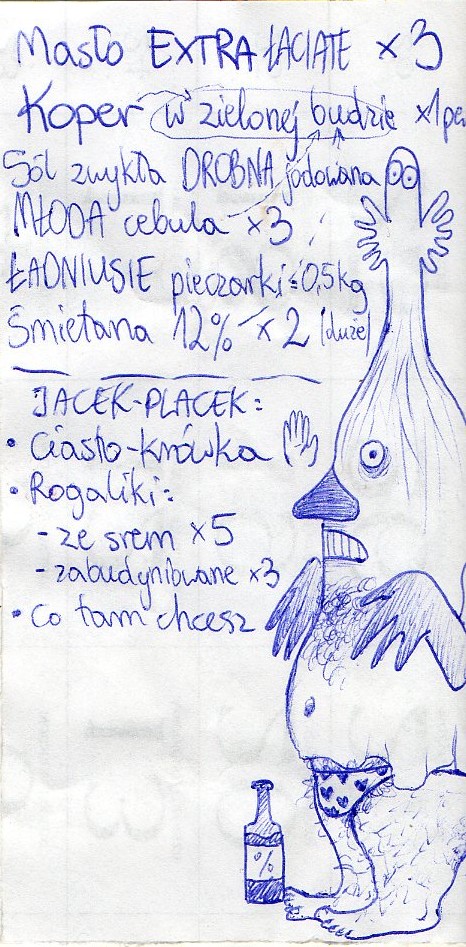 Masło EXTRA ŁACIATE x3
Koper w zielonej budzie x1 pę
Sól zwykła DROBNA jodowana
MŁODA cebula x3
ŁADNIUSIE pieczarki: 0,5kg
Śmietana 12% x2 (duże)
JACEK-PLACEK:
• Ciasto-krówka
• Rogaliki:
- ze srem x5
- zabudyniowane x3
• Co tam chcesz
%